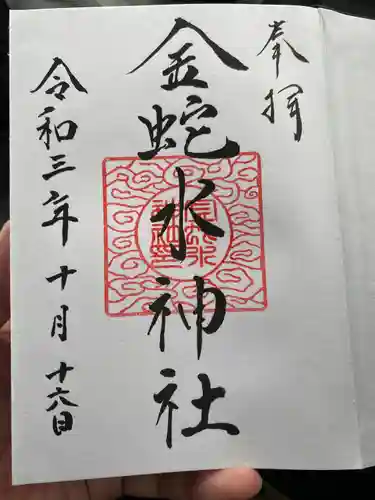 奉拝
金蛇水神社
令和三年十月十六日